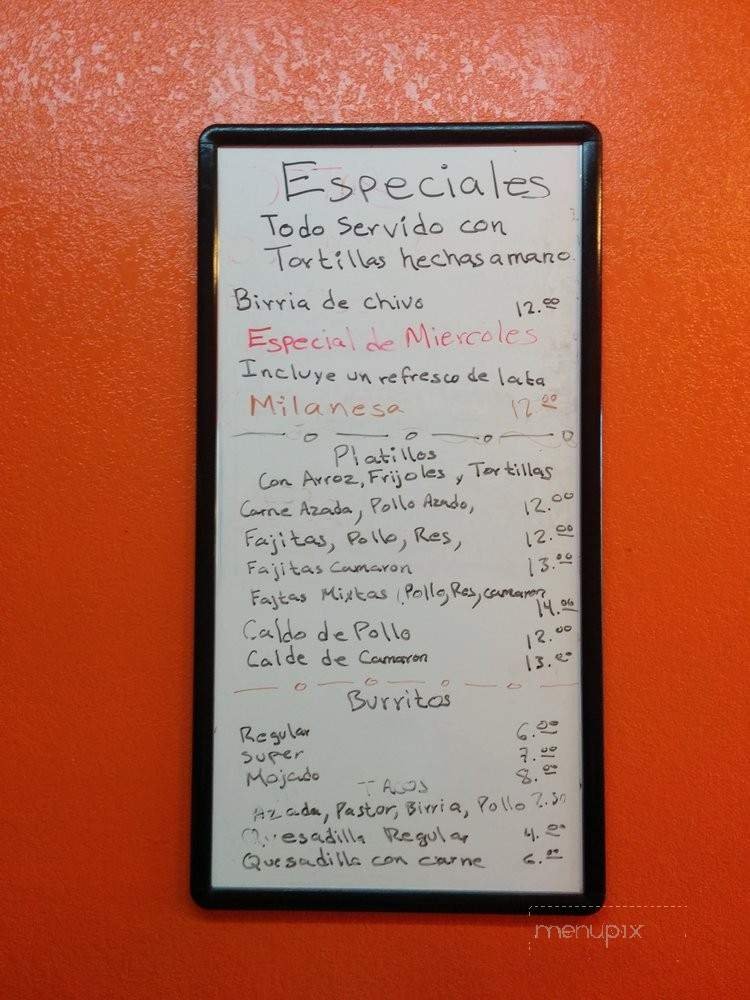 Especiales
Todo Servido con
Tortillas hechas a mano
Birria de chivo 12.00
Especial de Miercoles
Incluye un refresco de lata
Milanesa 12.00
Platillos
Con Arroz, Frijoles y Tortillas
Carne Azada, Pollo Azado, 12.00
Fajitas, Pollo, Res, 12.00
Fajitas Camaron 13.00
Fajtas Mixtas (Pollo, Res, camaron
14.00
Caldo de Pollo 12.00
Calde de Camaron 13.00
Burritos
Regular 6.00
Super 7.00
Mojado 8.00
TACOS
Azada, Pastor, Birria, Pollo 2.50
Quesadilla Regular 4.00
Quesadilla con carne 6.00
menupix